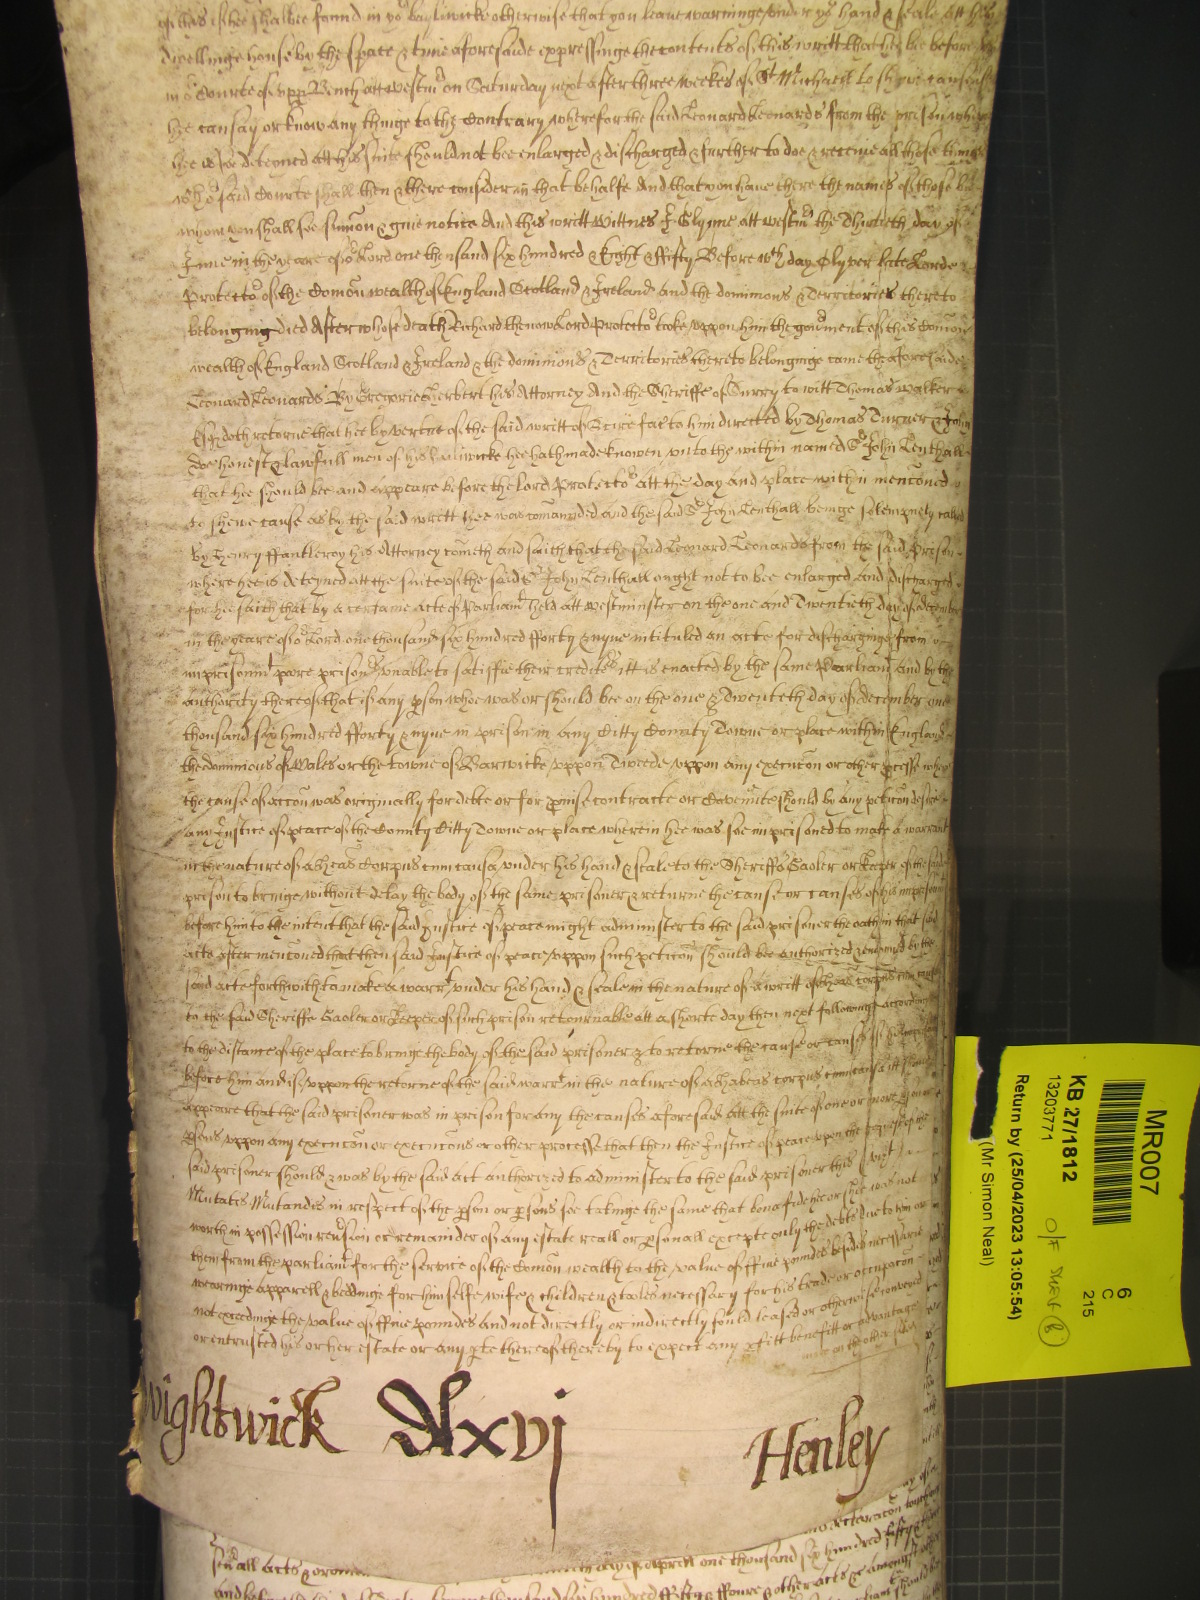 hee shalbee found in yor bayliwicke otherwise that you leave warninge under yor hand & seale att his
dwellinge house by the space & time aforesaide expressinge the contents of this writt that hee bee before
in or Courte of upp Bench att westm on Saturday next after three weekes of St Michaell to shewe cause if
hee can say or know any thinge to the Contrary wherefore the said Leonard Leonards from the prison where
hee is soe deteyned att his suite should not bee enlarged & discharged & further to doe & receive all those things
wch or said Courte shall then & there consider in that behalfe And that you have there the names of those by
whom you shall soe sumon & give notice And this writt Wittnes J Glynne att westmr the Thirtieth day of
June in the yeare of or Lord one thousand six hundred & Eight & ffifty Before wch day Olyver late Lorde
Protector of the Comon wealth of England Scotland & Ireland and the dominions & Territories thereto
belonging died After whose death Richard the now Lord Protector toke uppon him the goverment of this Comon
wealth of England Scotland & Ireland & the dominions & Territories thereto belonginge came the aforesaide
Leonard Leonards By Gregorie Herbert his Attorney And the Sheriffe of Surry to witt Thomas Walker
Esqr doth retorne that hee by vertue of the said writt of Scire fac to him directed by Thomas Turner & John
Doe honest & lawfull men of his bailiwicke hee hath made knowen unto the within named Sr John Lenthall
that hee should bee and Appeare before the lord Protector att the day and place within menconed
to shewe cause as by the said writt hee was comaunded and the said Sr John Lenthall beinge solempnely called
By Henry ffantleroy his Attorney cometh and saith that the said Leonard Leonards from the said prison
where hee is deteyned att the suite of the said Sr John Lenthall ought not to bee enlarged and discharged
for hee saith that by a certaine acte of Parliamt held att westminster on the one and Twentieth day of december
in the yeare of or Lord one thousand six hundred fforty & nyne intituled an acte for discharginge from
imprisonmt poore prisoners unable to satisfie their creditors itt is enacted by the same Parliamt and by the
authority thereof that if any pson whoe was or should bee on the one & Twentieth day of december one
thousand six hundred fforty & nyne in prison in any Citty County Towne or place within England
the dominions of Wales or the towne of Barwicke uppon Tweede uppon any execucon or other pcesse where
the cause of accon was originally for debte or for pmise contracte or Covennte should by any peticon desire
any Justice of peace of the County Citty Towne or place wherein hee was soe imprisoned to make a warrant
in the nature of a heas Corpus cum causa under his hand & seale to the Sheriffe Gaoler or Keeper of the said
prison to bringe without delay the body of the same prisoner & retorne the cause or causes of his imprisonmt
before him to the intent that the said Justice of peace might administer to the said prisoner the oath in that said
acte after menconed that then said Justice of peace uppon such peticon should bee authorized & enjoyned by the
said acte forthwith to make a warrt under his hand & seale in the nature of a writt of heas corpus cum causa
to the said Sheriffe Gaoler or Keeper of such prison retournable att a shorte day then next followinge according
to the distance of the place to bringe the body of the said prisoner & to retorne the cause or causes of his imprisonmt
before him and if uppon the retorne of the said warrt in the nature of a habeas corpus cum causa itt should
Appeare that the said prisoner was in prison for any the causes aforesaid att the suite of one or more pson or
psons uppon any execucon or execucons or other processe that then the Justice of peace upon the request of the
said prisoner should & was by the said act authorized to administer to the said prisoner this (vizt)
Mutatis Mutandis in respect of the pson or psons soe takinge the same that bona fide hee or shee was not
worth in possession revsion or remainder of any estate reall or psonall excepte only the debts due to him or
them from the parliamt for the service of the Comon wealth to the value of ffive poundes besides necessarie
wearinge apparell & beddinge for himselfe wife & children & tooles necessary for his trade or occupacon
not exceedinge the value of ffive poundes and not directly or indirectly sould leased or otherwise conveyed
or entrusted his or her estate or any pte thereof thereby to expect any pfitt benefitt or advantage
more on the other side
Wightwick Dlxvj Henley
MR007
6
C
215
KB 27/1812
O/F sheet 8
13203771
Return by (25/04/2023 13:05:54)
(Mr Simon Neal)